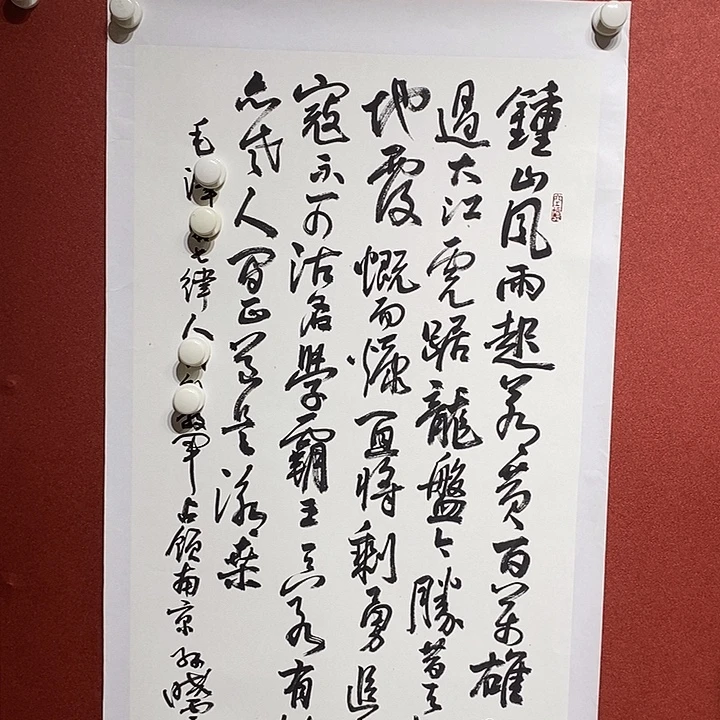 鍾山风雨起蒼黃百万雄
過大江虎踞龍盤今勝昔天
地覆慨而慷宜將剩勇追
寇不可沽名學霸王天若有
亦老人間正道是滄桑
毛澤七律人放軍占領南京孫曉雲